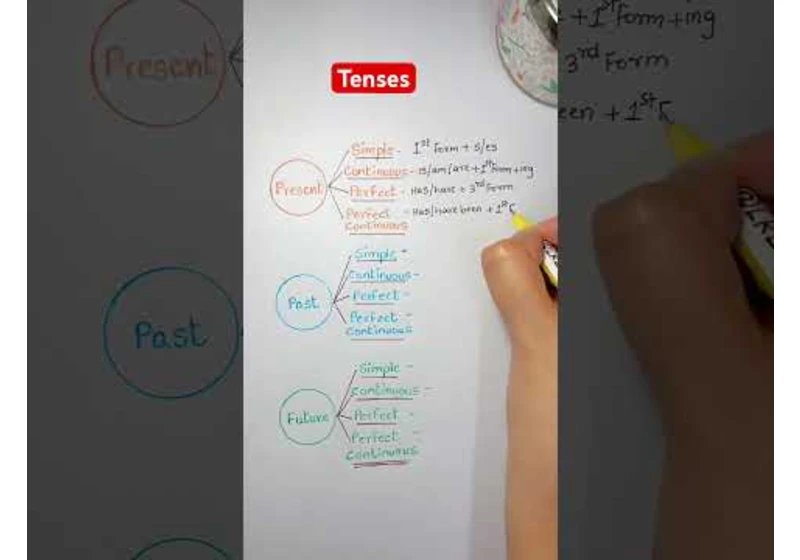 Tenses
Present
Simple - 1st Form + s/es
Continuous - is/am/are + 1st Form + ing
Perfect - Has/have + 3rd Form
Perfect Continuous - Has/have been + 1st F
Past
Simple -
Continuous -
Perfect -
Perfect Continuous -
Future
Simple -
Continuous -
Perfect -
Perfect Continuous -
Present
Past
+ 1st Form + ing
3rd Form
een + 1st F